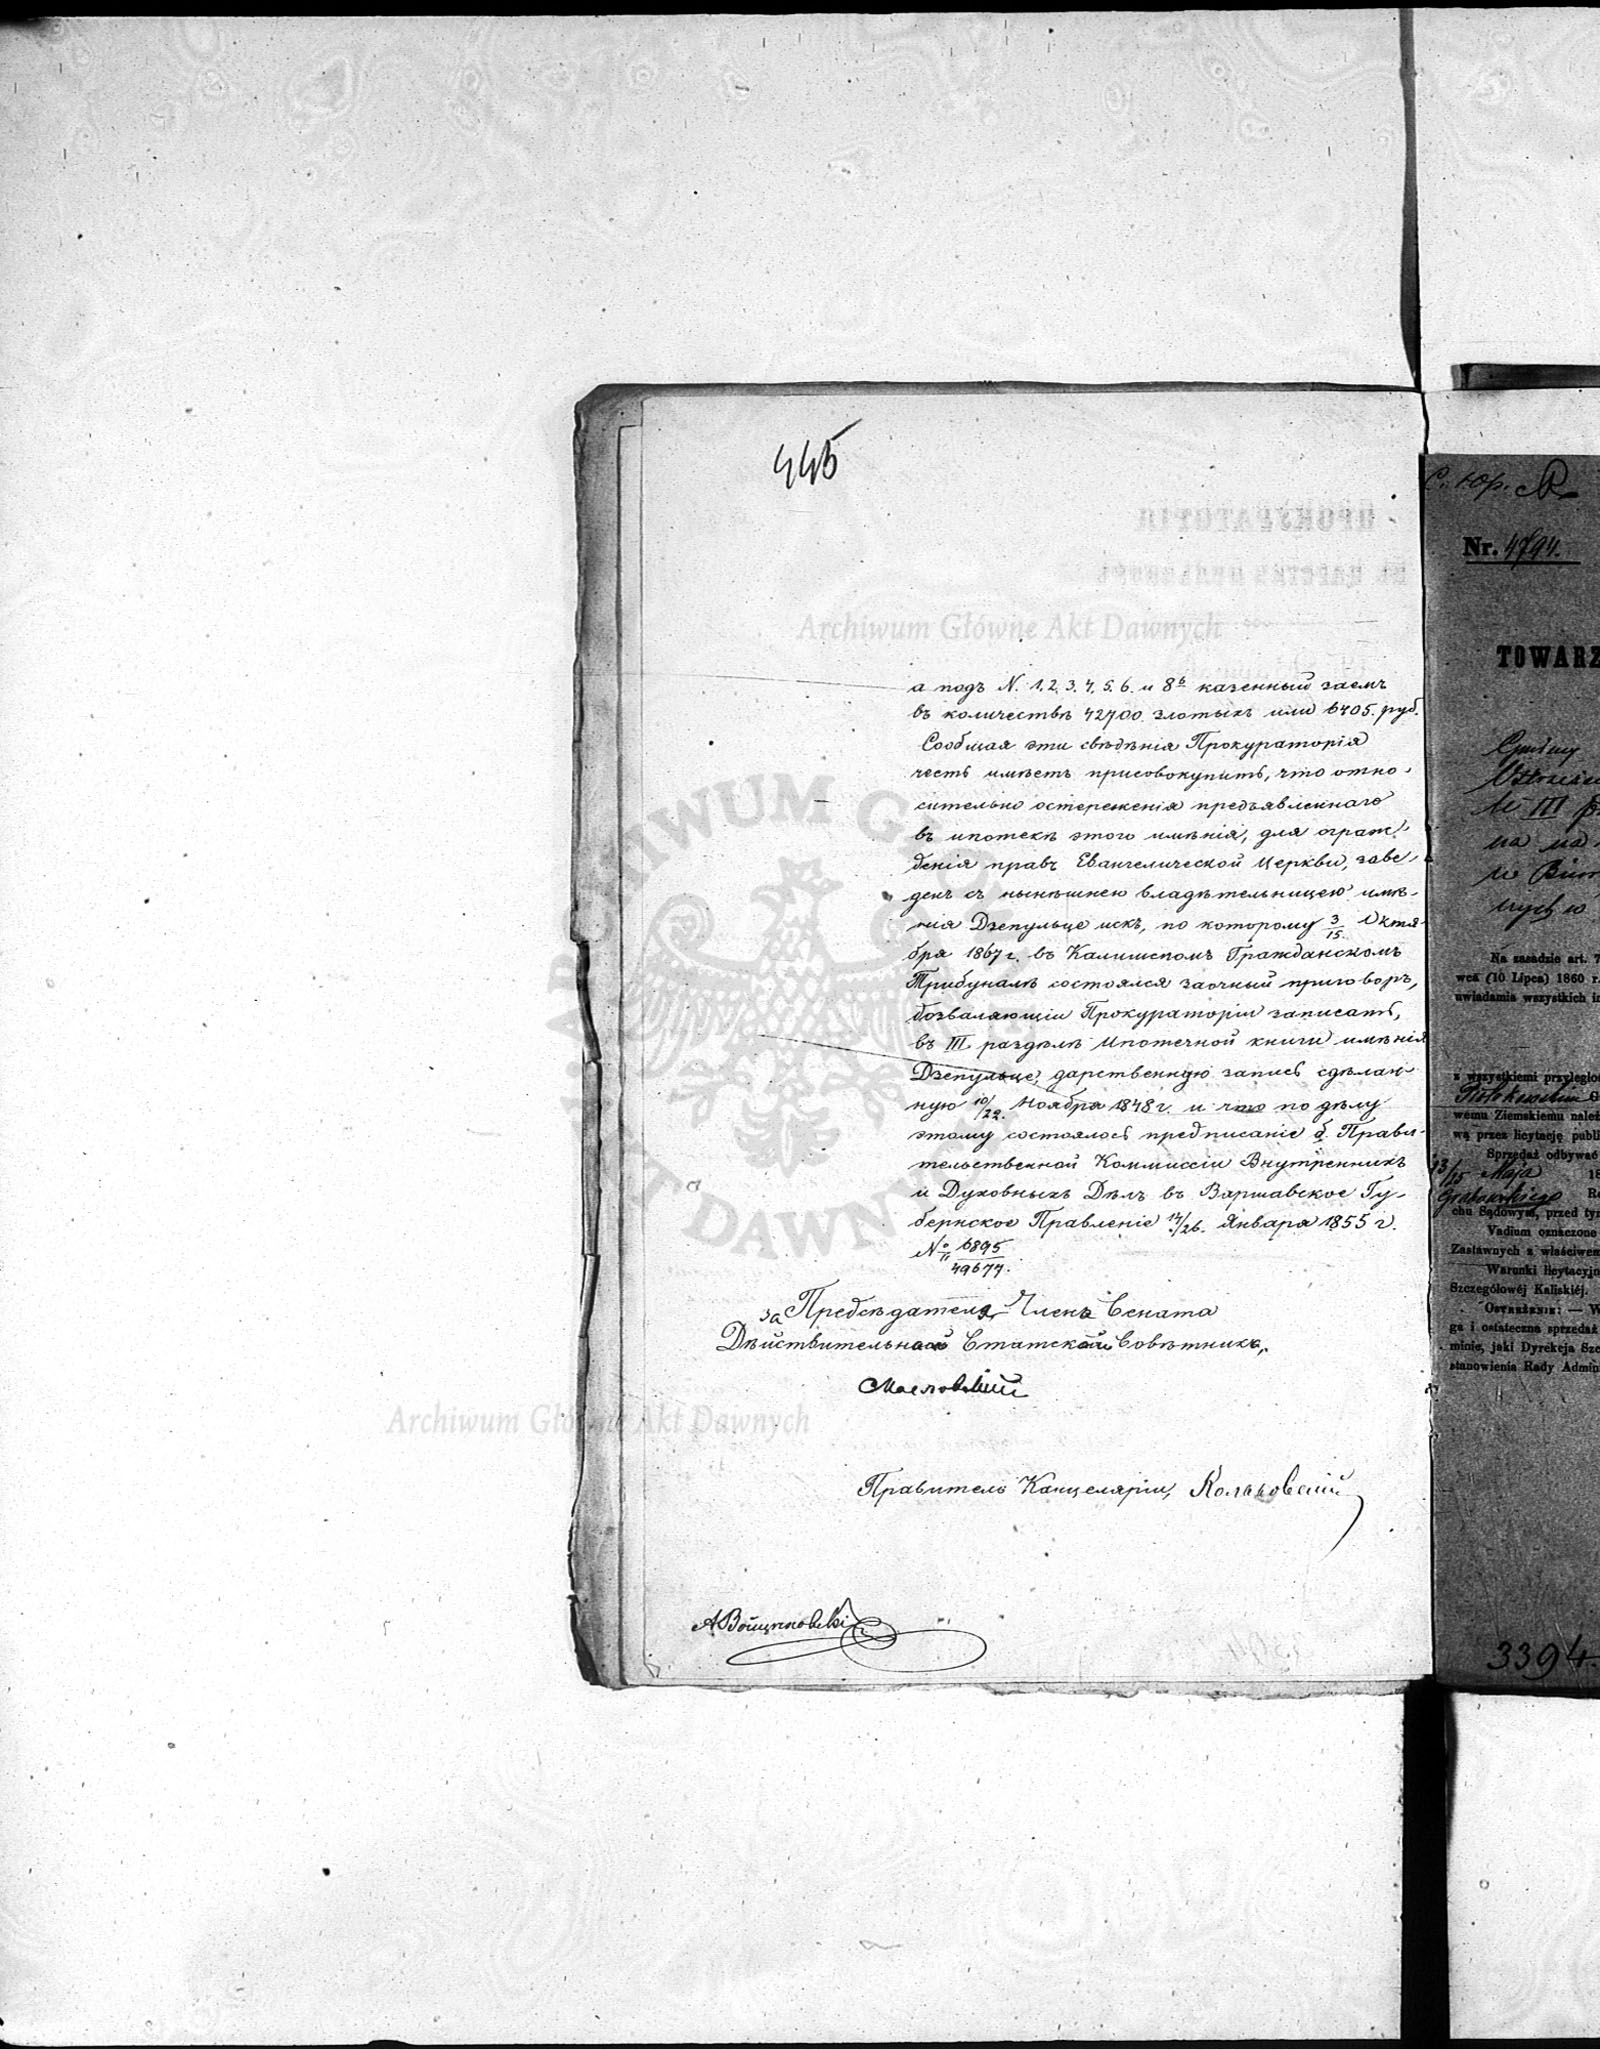 445
а подъ N. 1, 2, 3, 4, 5, 6. и 8б казенный заемъ
въ количествѣ 42700 злотыхъ или 6405. руб.
Сообщая эти свѣдѣнія Прокураторія
честь имѣетъ присовокупить, что отно-
сительно остереженія предъявленнаго
въ ипотекѣ этого имѣнія, для ограж-
денія правъ Евангелической Церкви, заве-
денъ съ нынѣшнею владѣтельницею имѣ-
нія Дзепульце искъ, по которому 3/15 Октя-
бря 1867 г. въ Калишскомъ Гражданскомъ
Трибуналѣ состоялся заочный приговоръ,
дозваляющій Прокураторіи записать,
въ III раздѣлѣ ипотечной книги имѣнія
Дзепульце, дарственную запись сдѣлан-
ную 10/22. Ноября 1848 г. и что по дѣлу
этому состоялось предписаніе б. Прави-
тельственной Коммиссіи Внутреннихъ
и Духовныхъ Дѣлъ въ Варшавское Гу-
бернское Правленіе 14/26. Января 1855 г.
№ 6895/49677.
За Предсѣдателя, Членъ Сената
Дѣйствительный Статскій Совѣтникъ,
Правитель Канцеляріи,
Archiwum Główne Akt Dawnych
Archiwum Główne Akt Dawnych
ARCHIWUM GŁÓWNE AKT DAWNYCH
С. Юр.
Nr. 4794.
TOWARZ
Gminy
M III
na na
w
nych w
Na zasadzie art. 7
wca (10 Lipca) 1860 r.
uwiadamia wszystkich in
z wszystkiemi przyległo
wemu Ziemskiemu należ
wą przez licytację publi
Sprzedaż odbywać
13/25 Maja 18
Grabowskiego Re
chu Sądowym, przed tym
Vadium oznaczone
Zastawnych z właściwem
Warunki licytacyjn
Szczegółowéj Kaliskiéj.
Ostrzeżenie: — W
ga i ostateczna sprzedaż
minie, jaki Dyrekcja Szc
stanowienia Rady Admin
3394.